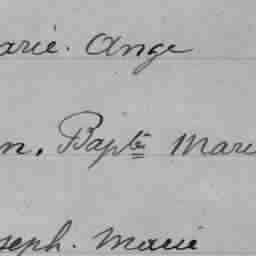 arie. Ange
n. Bapte Marie
seph. Marie